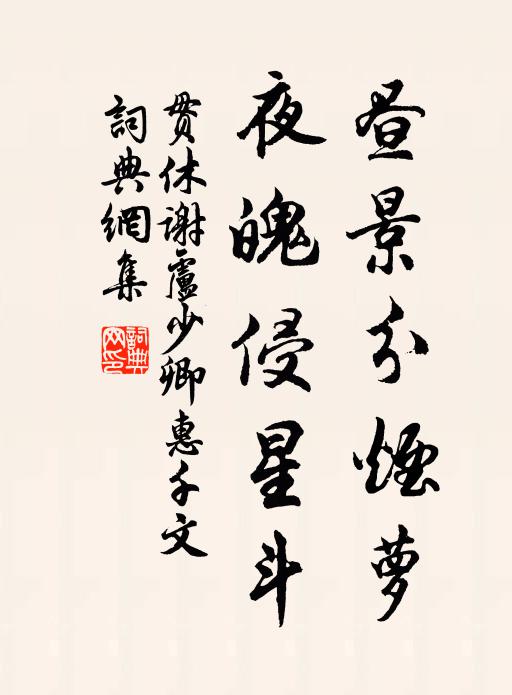 昼景分煙萝
夜魄侵星斗
贯休谢盧少卿惠千文
詞典網集
詞典網印